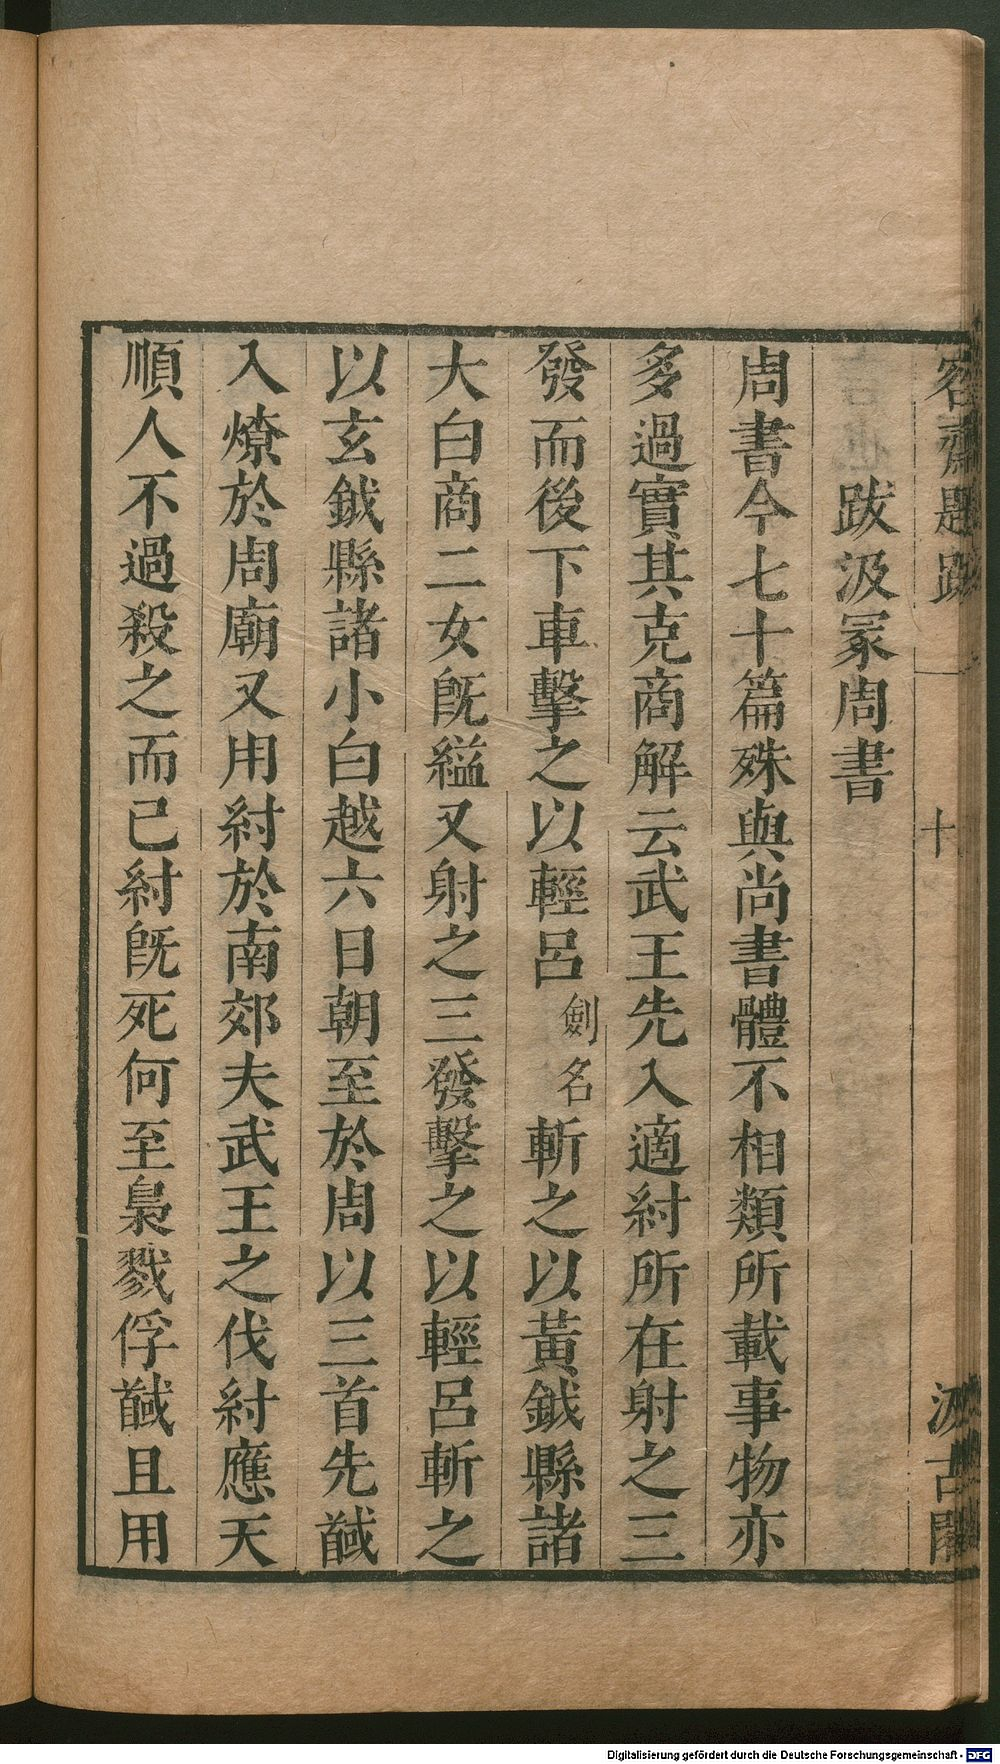 容齋題跋
十
汲古閣
跋汲冢周書
周書今七十篇殊與尚書體不相類所載事物亦
多過實其克商解云武王先入適紂所在射之三
發而後下車擊之以輕呂劍名斬之以黃鉞縣諸
大白商二女旣縊又射之三發擊之以輕呂斬之
以玄鉞縣諸小白越六日朝至於周以三首先馘
入燎於周廟又用紂於南郊夫武王之伐紂應天
順人不過殺之而已紂旣死何至梟戮俘馘且用
Digitalisierung gefördert durch die Deutsche Forschungsgemeinschaft - DFG